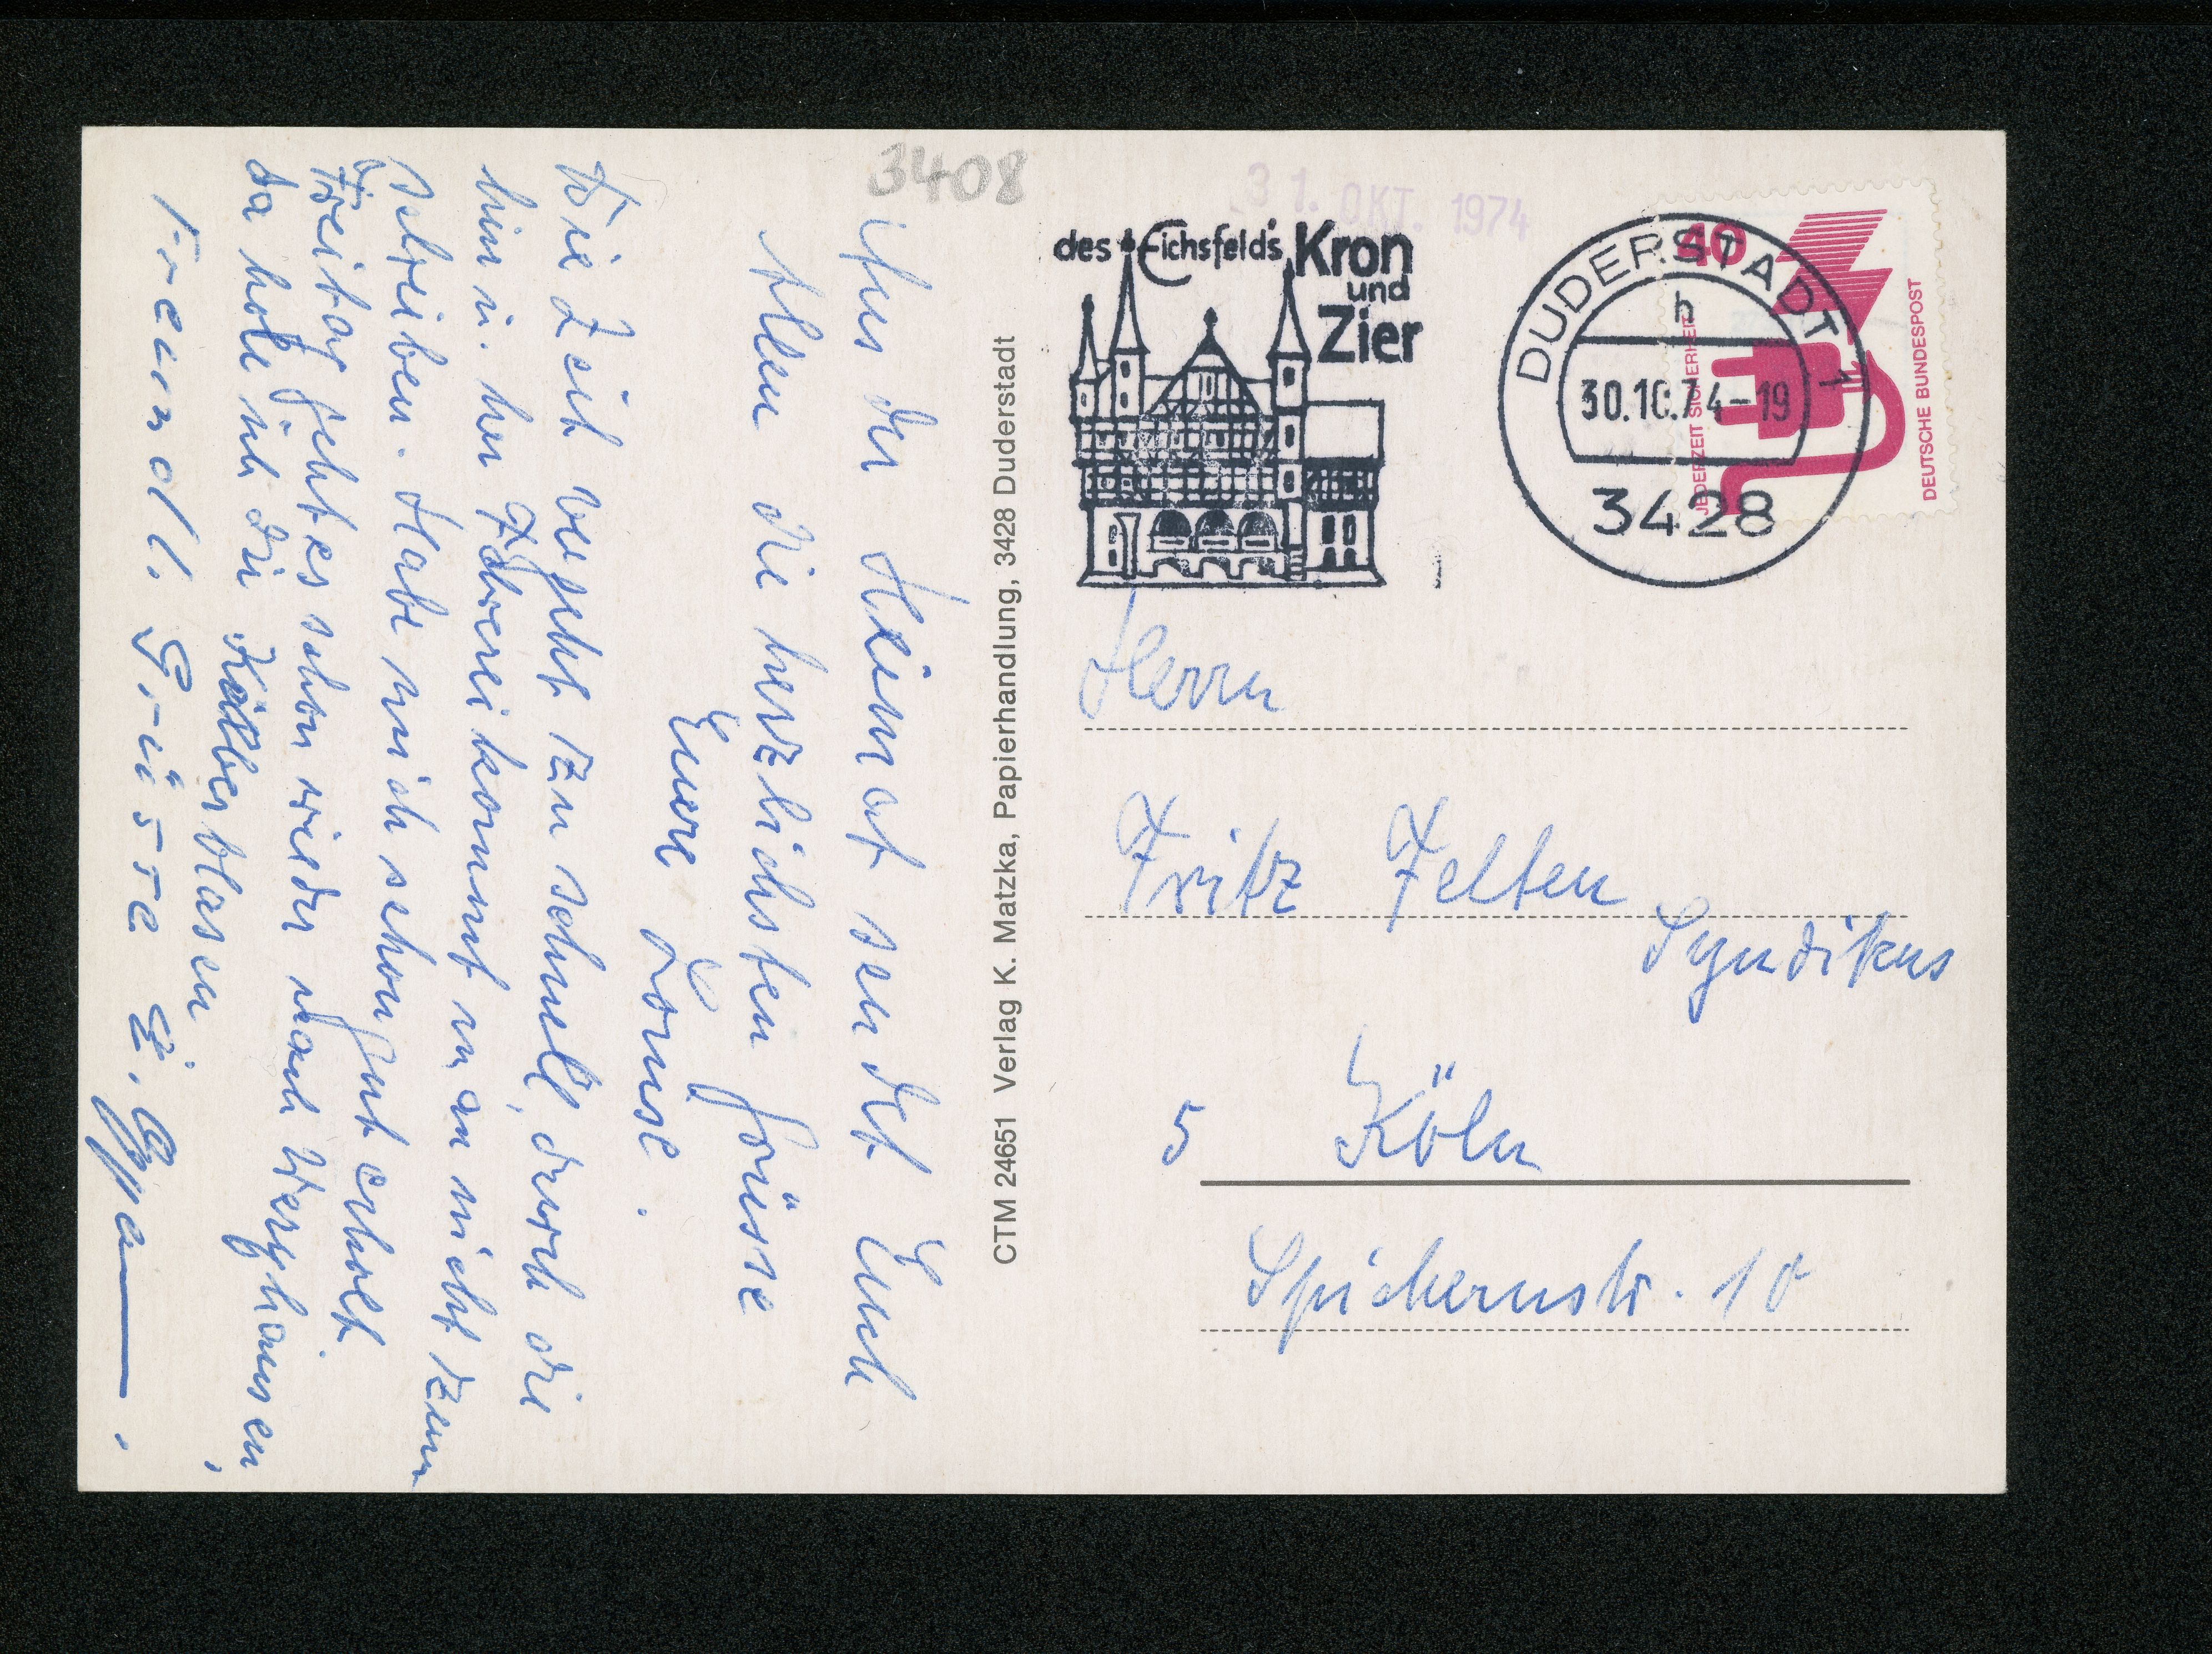 3408
Aus der Heimat sendet Euch
Allen die herzlichsten Grüsse
Euere Lonise.
Die Zeit vergeht zu schnell, durch die
hin u. her Fahrerei kommt man nicht zum
schreiben. Habe mich schon gut erholt.
Freitag geht es schon wieder nach
da hole ich die
Freundl. Grüsse
CTM 24651 Verlag K. Matzka, Papierhandlung, 3428 Duderstadt
31. OKT. 1974
des Eichsfeld's Kron
und
Zier
DUDERSTADT 1
b
30.10.74-19
3428
40
JEDERZEIT SICHERHEIT
DEUTSCHE BUNDESPOST
Herrn
Fritz Felten
Syndikus
5 Köln
Spichernstr. 10